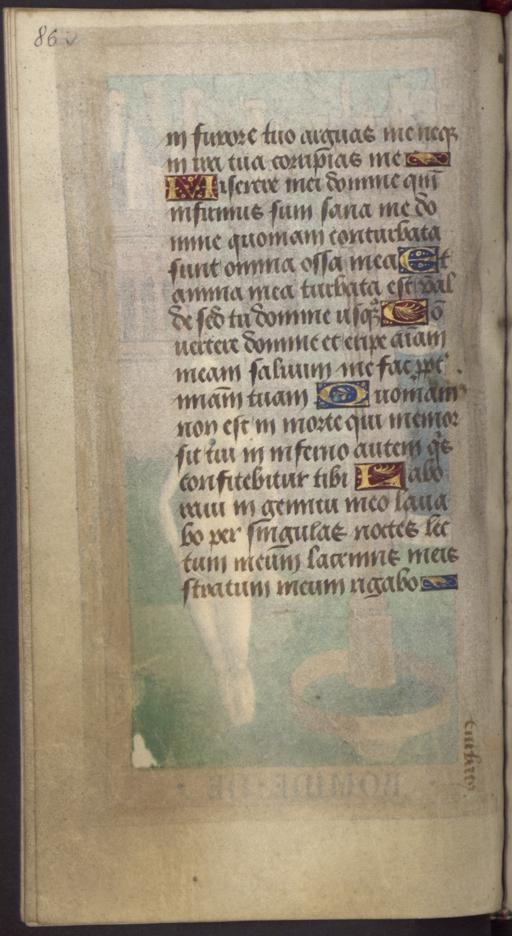 86v
in furore tuo arguas me neq̢
in ira tua corripias me
Miserere mei domine qm̄
infirmus sum sana me do
mine quoniam conturbata
sunt omnia ossa mea Et
anima mea turbata est val
de sed tu domine usq̢ Cō
vertere domine et eripe aīam
meam saluum me fac ppt̄
miām tuam Quoniam
non est in morte qui memor
sit tui in inferno autem q̄s
confitebitur tibi Labo
raui in gemitu meo laua
bo per singulas noctes lec
tum meūm lacrimis meis
stratum meum rigabo
ROMINE·NE